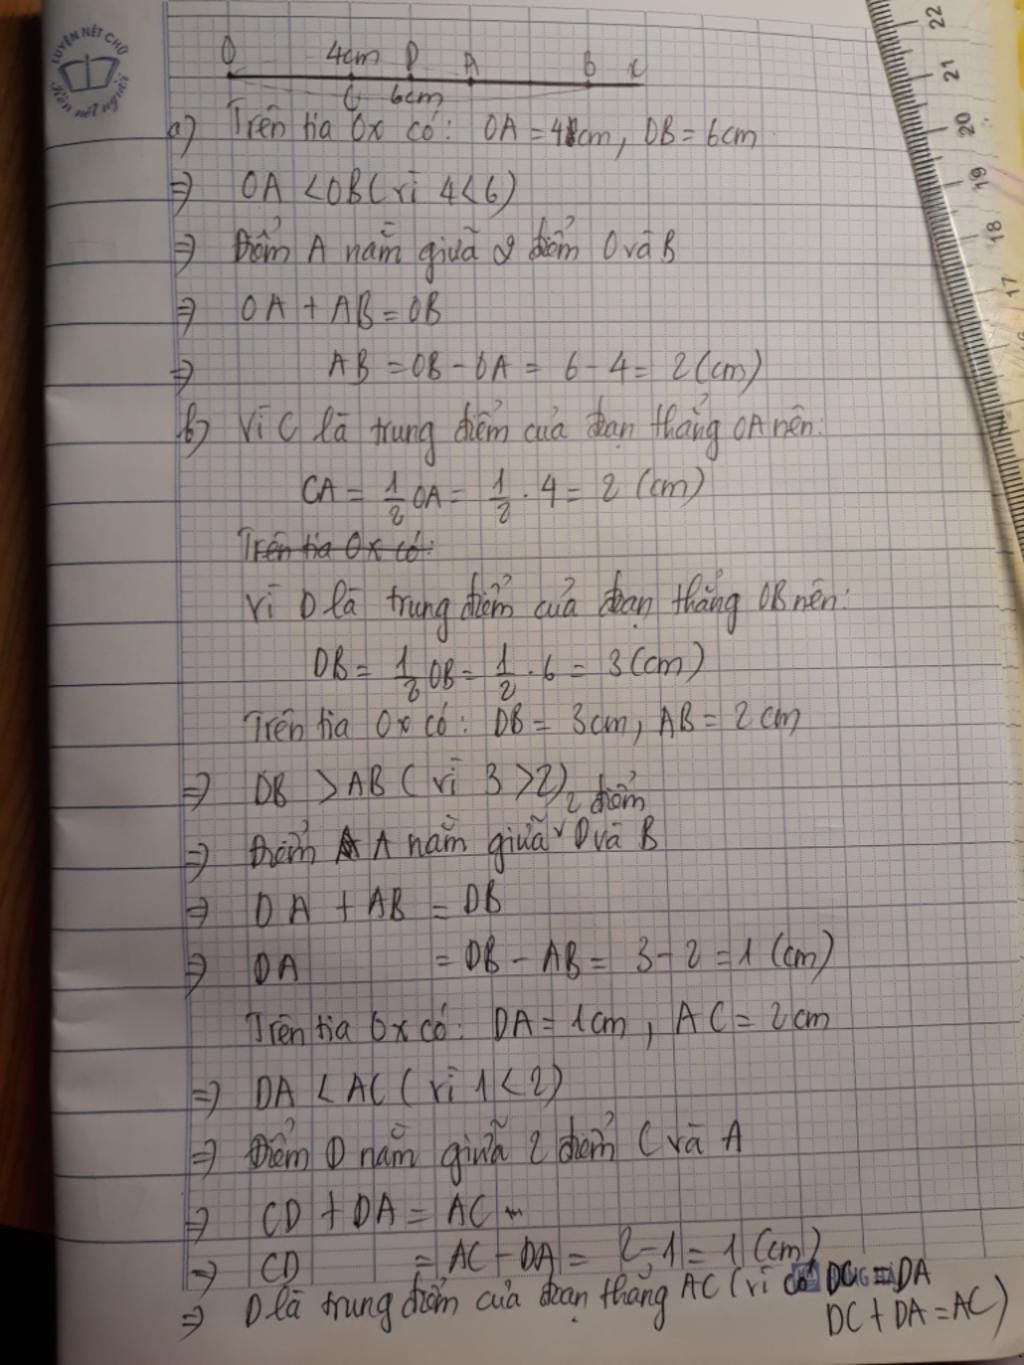 LUYỆN NÉT CHỮ
Rèn nết người
22
21
20
19
18
17
O 4cm D A B x
C 6cm
a) Trên tia Ox có: OA = 4cm, OB = 6cm
=> OA < OB (vì 4 < 6)
=> Điểm A nằm giữa 2 điểm O và B
=> OA + AB = OB
=> AB = OB - OA = 6 - 4 = 2 (cm)
b) Vì C là trung điểm của đoạn thẳng OA nên:
CA = 1/2 OA = 1/2 . 4 = 2 (cm)
Trên tia Ox có:
Vì D là trung điểm của đoạn thẳng OB nên:
DB = 1/2 OB = 1/2 . 6 = 3 (cm)
Trên tia Ox có: DB = 3cm, AB = 2cm
=> DB > AB (vì 3 > 2)
=> Điểm A nằm giữa 2 điểm D và B
=> DA + AB = DB
=> DA = DB - AB = 3 - 2 = 1 (cm)
Trên tia Ox có: DA = 1cm, AC = 2cm
=> DA < AC (vì 1 < 2)
=> Điểm D nằm giữa 2 điểm C và A
=> CD + DA = AC
=> CD = AC - DA = 2 - 1 = 1 (cm)
=> D là trung điểm của đoạn thẳng AC (vì có DC = DA
DC + DA = AC)